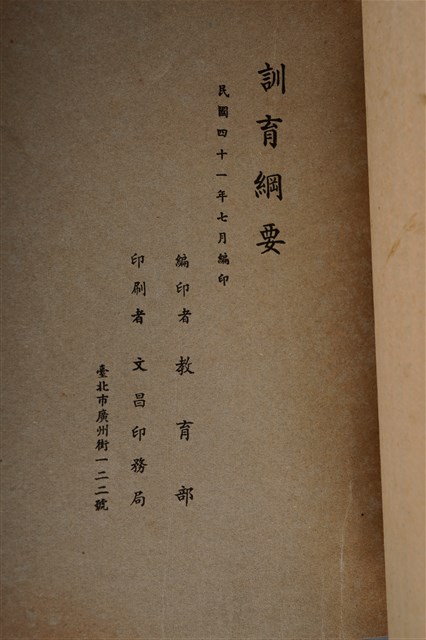 訓育綱要
民國四十一年七月編印
編印者 教育部
印刷者 文昌印務局
臺北市廣州街一二二號